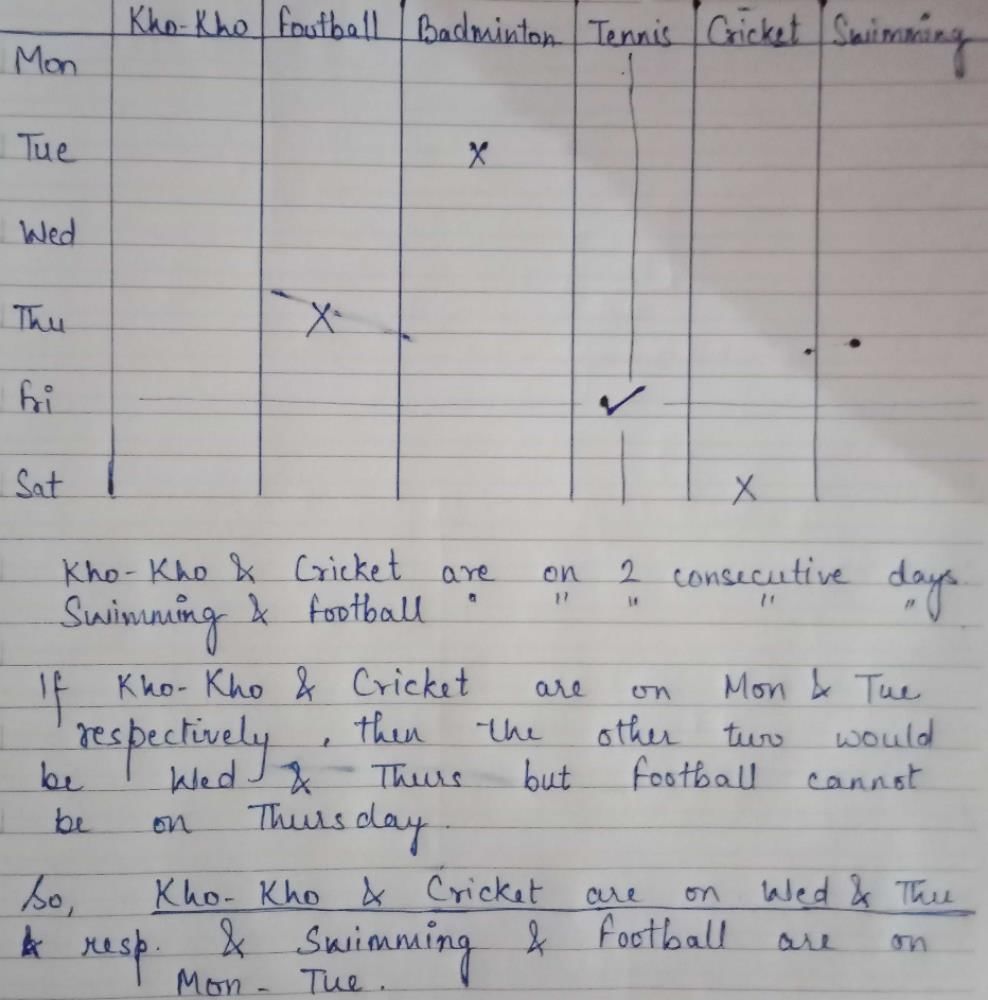 Kho-Kho Football Badminton Tennis Cricket Swimming
Mon
Tue X
Wed
Thu X
Fri ✓
Sat X
Kho-Kho & Cricket are on 2 consecutive days
Swimming & football " " " " "
If Kho-Kho & Cricket are on Mon & Tue
respectively, then the other two would
be Wed & Thurs but football cannot
be on Thursday.
So, Kho-Kho & Cricket are on Wed & Thu
& resp. & Swimming & football are on
Mon - Tue.